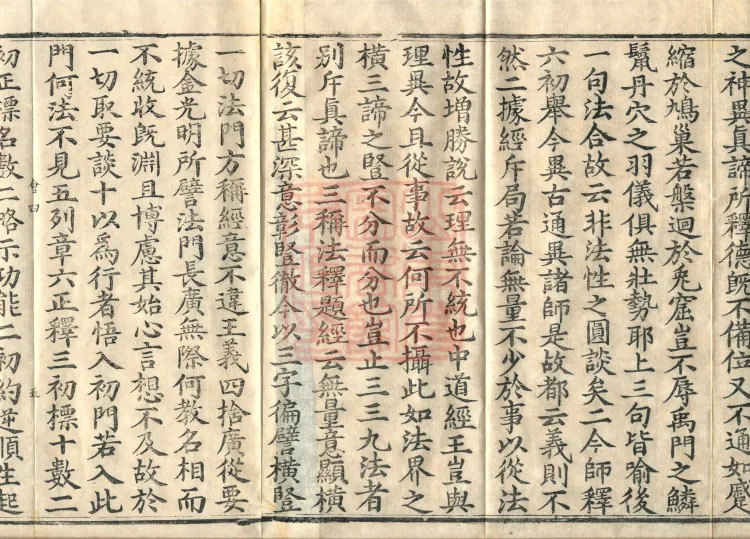 之神異真諦所釋德既不備位又不通如蹙
縮於鳩巢若盤迴於兔窟豈不辱禹門之鱗
鬣丹穴之羽儀俱無壯勢耶上三句皆喻後
一句法合故云非法性之圓談矣二今師釋
六初舉今異古通異諸師是故都云義則不
然二據經斥局若論無量不少於事以從法
性故增勝說云理無不統也中道經王豈與
理異今且從事故云何所不攝此如法界之
橫三諦之豎不分而分也豈止三三九法者
別斥真諦也三稱法釋題經云無量意顯橫
該復云甚深意彰豎徹今以三字徧譬橫豎
一切法門方稱經意不違王義四捨廣從要
據金光明所譬法門長廣無際何教名相而
不統收既淵且博慮其始心言想不及故於
一切取要談十以爲行者悟入初門若入此
門何法不見五列章六正釋三初標十數二
會四
五
初正標名數二略示功能二初約逆順生起